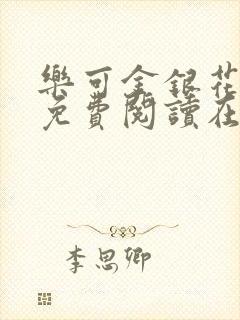 樂可金銀花
免費閱讀在
李思卿